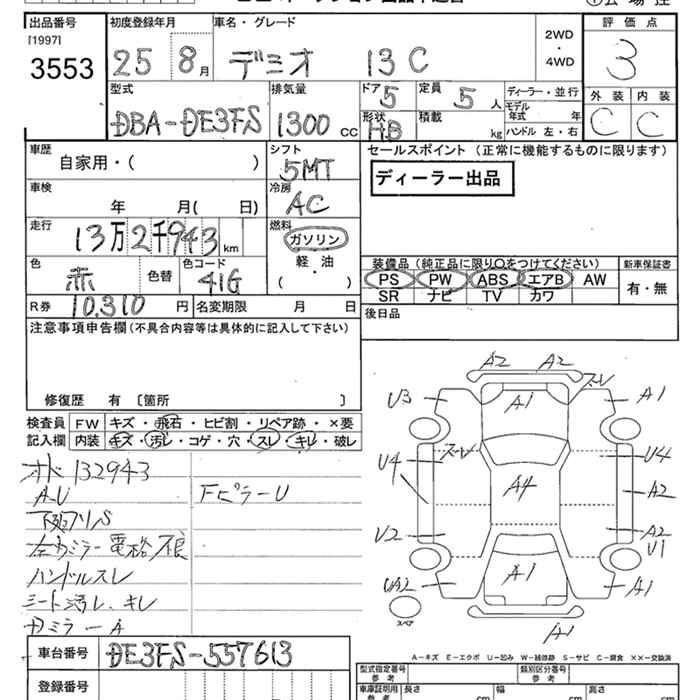 出品番号 初度登録年月 車名・グレード 2WD・4WD 評価点
[1997] 3553 25 8月 デミオ 13C 3
型式 排気量 ドア 5 定員 5人 ディーラー・並行 外装 内装
DBA-DE3FS 1300cc 形状 HB 積載 kg モデル年式 年 C C
ハンドル 左・右
車歴 シフト セールスポイント (正常に機能するものに限ります)
自家用・( ) 5MT ディーラー出品
車検 冷房
年 月( 日) AC
走行 燃料
13万2千943km ガソリン
軽・油
( )
装備品 (純正品に限り○をつけてください) 新車保証書
色 色替 色コード PS PW ABS エアB AW 有・無
赤 41G SR ナビ TV カワ
R券 10,310円 名変期限 月 日 後日品
注意事項申告欄(不具合内容等は具体的に記入して下さい)
修復歴 有 [箇所 ]
検査員 FW キズ・飛石・ヒビ割・リペア跡・×要
記入欄 内装 キズ・汚レ・コゲ・穴・スレ・キレ・破レ
オド132943
A.U FピラーU
左ミラー電格不良
ハンドルスレ
シート汚レ、キレ
ミラーA
A2 A2
U3 A1 スレ A1
スレ
U4 A4 U4
A2
U2 A2
U1
UA2 A1 A1
スペア
A1
A-キズ E-エクボ U-凹み W-補修跡 S-サビ C-腐食 ××-交換済
車台番号 DE3FS-557613
型式指定番号 参考 類別区分番号 参考
登録番号 車庫証明用 参考 長さ cm 幅 cm 高さ cm